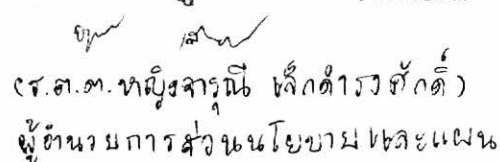 (ร.ต.ต.หญิงจารุณี เล็กดำรงศักดิ์)
ผู้อำนวยการส่วนนโยบายและแผน